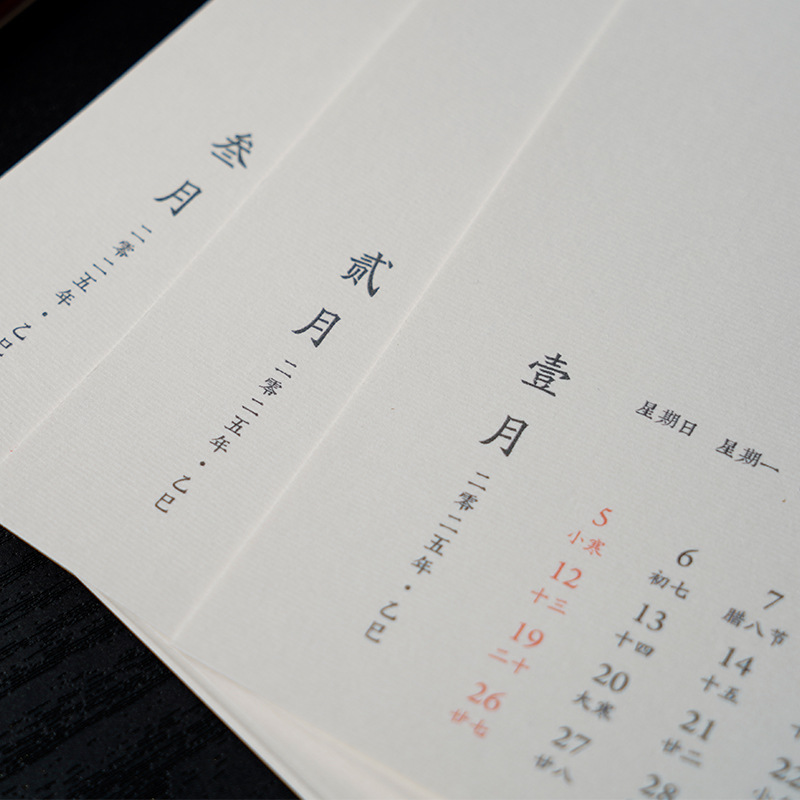 叁月
二零二五年·乙巳
贰月
二零二五年·乙巳
壹月
二零二五年·乙巳
星期日 星期一
5 6 7
小寒 初七 腊八节
12 13 14
十三 十四 十五
19 20 21
二十 大寒 廿二
26 27 28
廿七 廿八
22